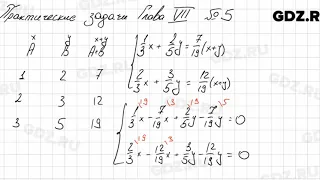 Практические задачи Глава VIII №5
GDZ.RU
x y
A B A+B
1 2 7
2 3 12
3 5 19
1/3 x + 2/5 y = 7/19 (x+y)
2/3 x + 3/5 y = 12/19 (x+y)
·19 ·3 ·19 ·5
1/3 x - 7/19 x + 2/5 y - 7/19 y = 0
·19 ·3
2/3 x - 12/19 x + 3/5 y - 12/19 y = 0